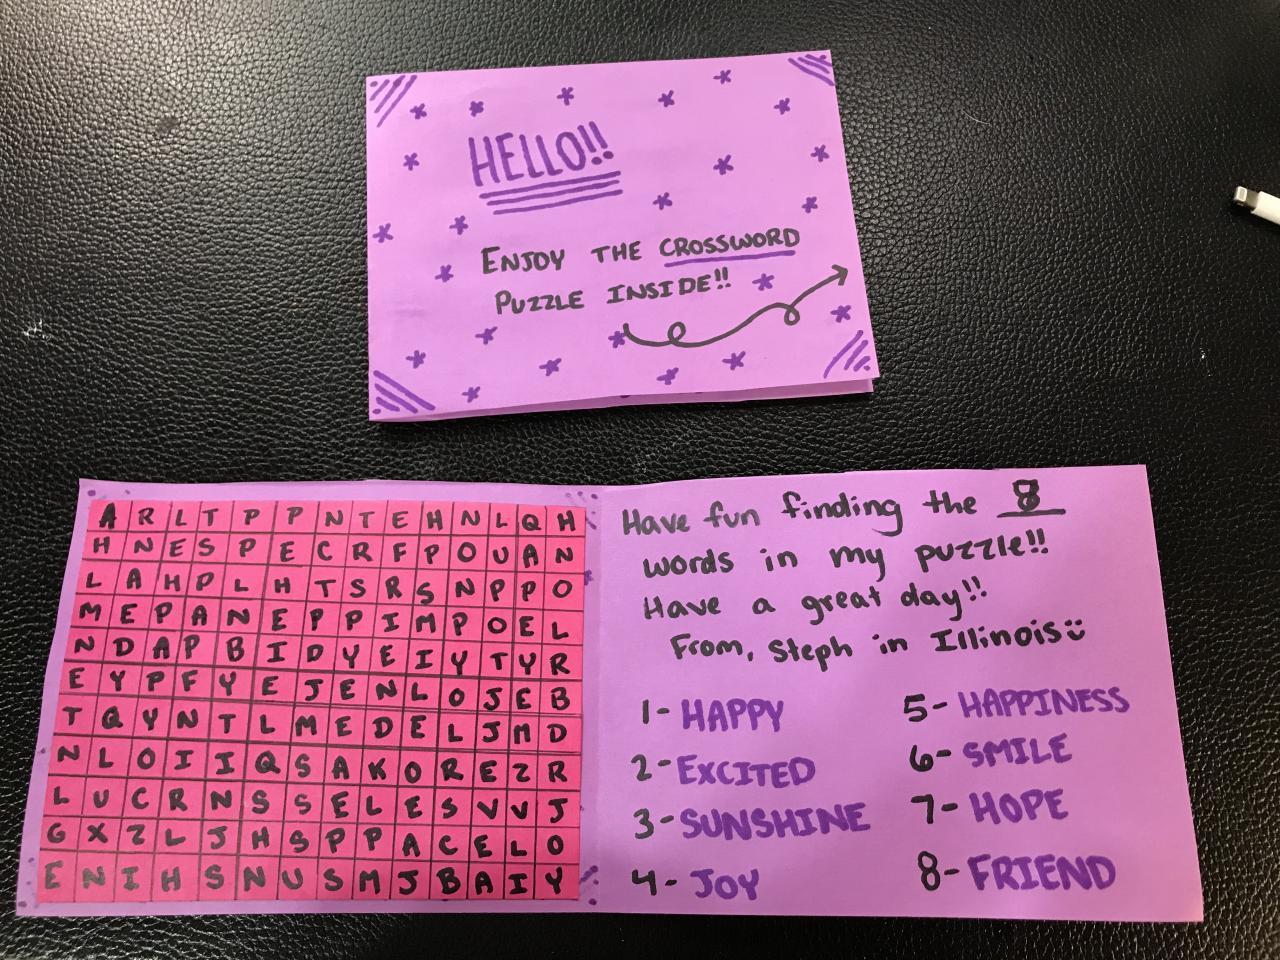 HELLO!!
ENJOY THE CROSSWORD
PUZZLE INSIDE!!
A R L T P P N T E H N L Q H
H N E S P E C R F P O U A N
L A H P L H T S R S N P P O
M E P A N E P P I M P O E L
N D A P B I D Y E I Y T Y R
E Y P F Y E J E N L O J E B
T Q Y N T L M E D E L J M D
N L O I I Q S A K O R E Z R
L U C R N S S E L E S V V J
G X Z L J H S P P A C E L O
E N I H S N U S M J B A I Y
Have fun finding the 8
words in my puzzle!!
Have a great day!!
From, Steph in Illinois
1- HAPPY
2- EXCITED
3- SUNSHINE
4- JOY
5- HAPPINESS
6- SMILE
7- HOPE
8- FRIEND